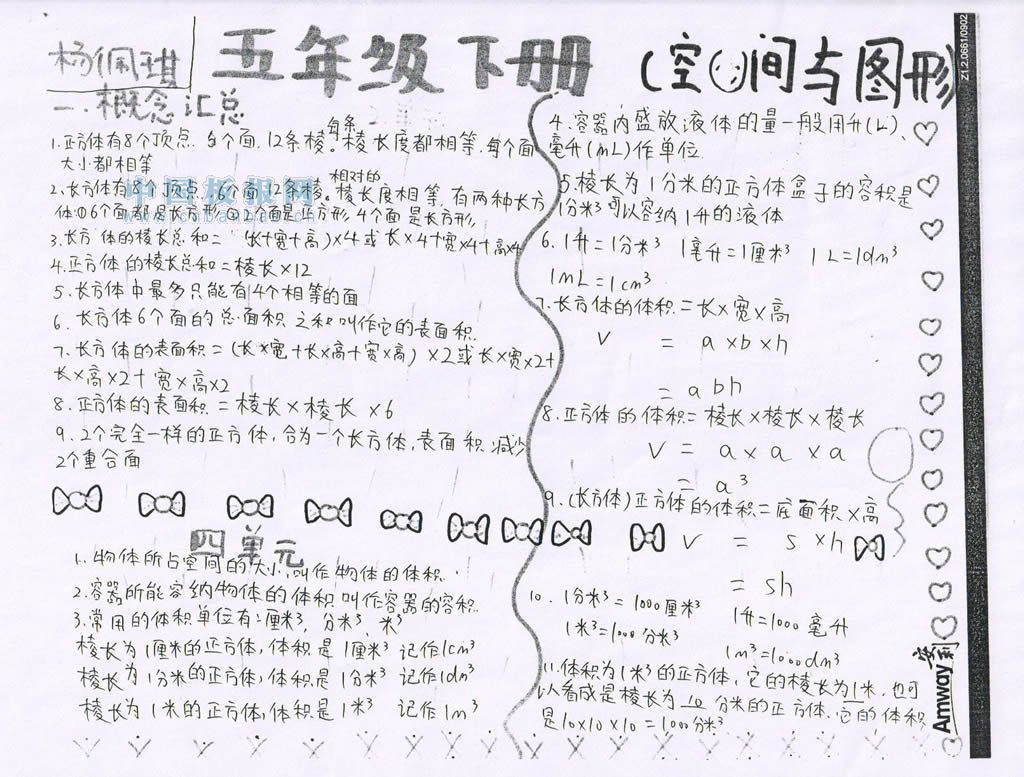 杨佩琪
五年级下册
(空间与图形)
一.概念汇总
1.正方体有8个顶点.6个面.12条棱。每条棱长度都相等.每个面
大小都相等
2.长方体有8个顶点.6个面.12条棱。相对的棱长度相等,有两种长方
体①6个面都是长方形②2个面是正方形,4个面是长方形
3.长方体的棱长总和=(长+宽+高)×4或长×4+宽×4+高×4
4.正方体的棱长总和=棱长×12
5.长方体中最多只能有4个相等的面
6.长方体6个面的总面积之和叫作它的表面积.
7.长方体的表面积=(长×宽+长×高+宽×高)×2或长×宽×2+
长×高×2+宽×高×2
8.正方体的表面积=棱长×棱长×6
9.2个完全一样的正方体,合为一个长方体,表面积减少
2个重合面
四单元
1.物体所占空间的大小,叫作物体的体积.
2.容器所能容纳物体的体积叫作容器的容积.
3.常用的体积单位有:厘米³,分米³、米³
棱长为1厘米的正方体,体积是1厘米³记作1cm³
棱长为1分米的正方体,体积是1分米³记作1dm³
棱长为1米的正方体,体积是1米³ 记作1m³
4.容器内盛放液体的量一般用升(L)、
毫升(mL)作单位.
5.棱长为1分米的正方体盒子的容积是
1分米³可以容纳1升的液体
6.1升=1分米³ 1毫升=1厘米³ 1L=1dm³
1mL=1cm³
7.长方体的体积=长×宽×高
V = a×b×h
= abh
8.正方体的体积=棱长×棱长×棱长
V = a×a×a
= a³
9.(长方体)正方体的体积=底面积×高
V = s×h
= sh
10. 1分米³=1000厘米³ 1升=1000毫升
1米³=1000分米³ 1m³=1000dm³
11.体积为1米³的正方体,它的棱长为1米,也可
以看成是棱长为10分米的正方体、它的体积
是10×10×10=1000分米³
中国板报网
Z1.2.0661/0902
Amway安利